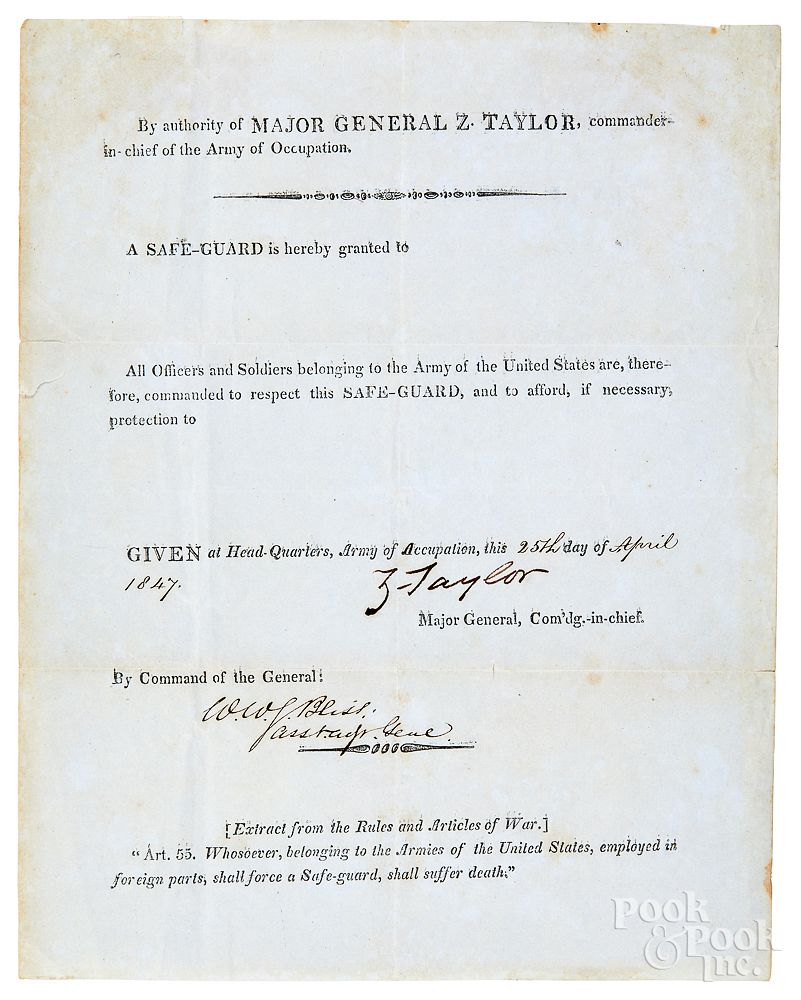 By authority of MAJOR GENERAL Z. TAYLOR, commander-
in-chief of the Army of Occupation.
A SAFE-GUARD is hereby granted to
All Officers and Soldiers belonging to the Army of the United States are, there-
fore, commanded to respect this SAFE-GUARD, and to afford, if necessary,
protection to
GIVEN at Head-Quarters, Army of Occupation, this 25th day of April
1847.
Z. Taylor
Major General, Com'dg.-in-chief.
By Command of the General:
W. W. J. Bliss.
Asst. adjt. Genl.
[Extract from the Rules and Articles of War.]
"Art. 55. Whosoever, belonging to the Armies of the United States, employed in
foreign parts, shall force a Safe-guard, shall suffer death."
POOK
& POOK
Inc.